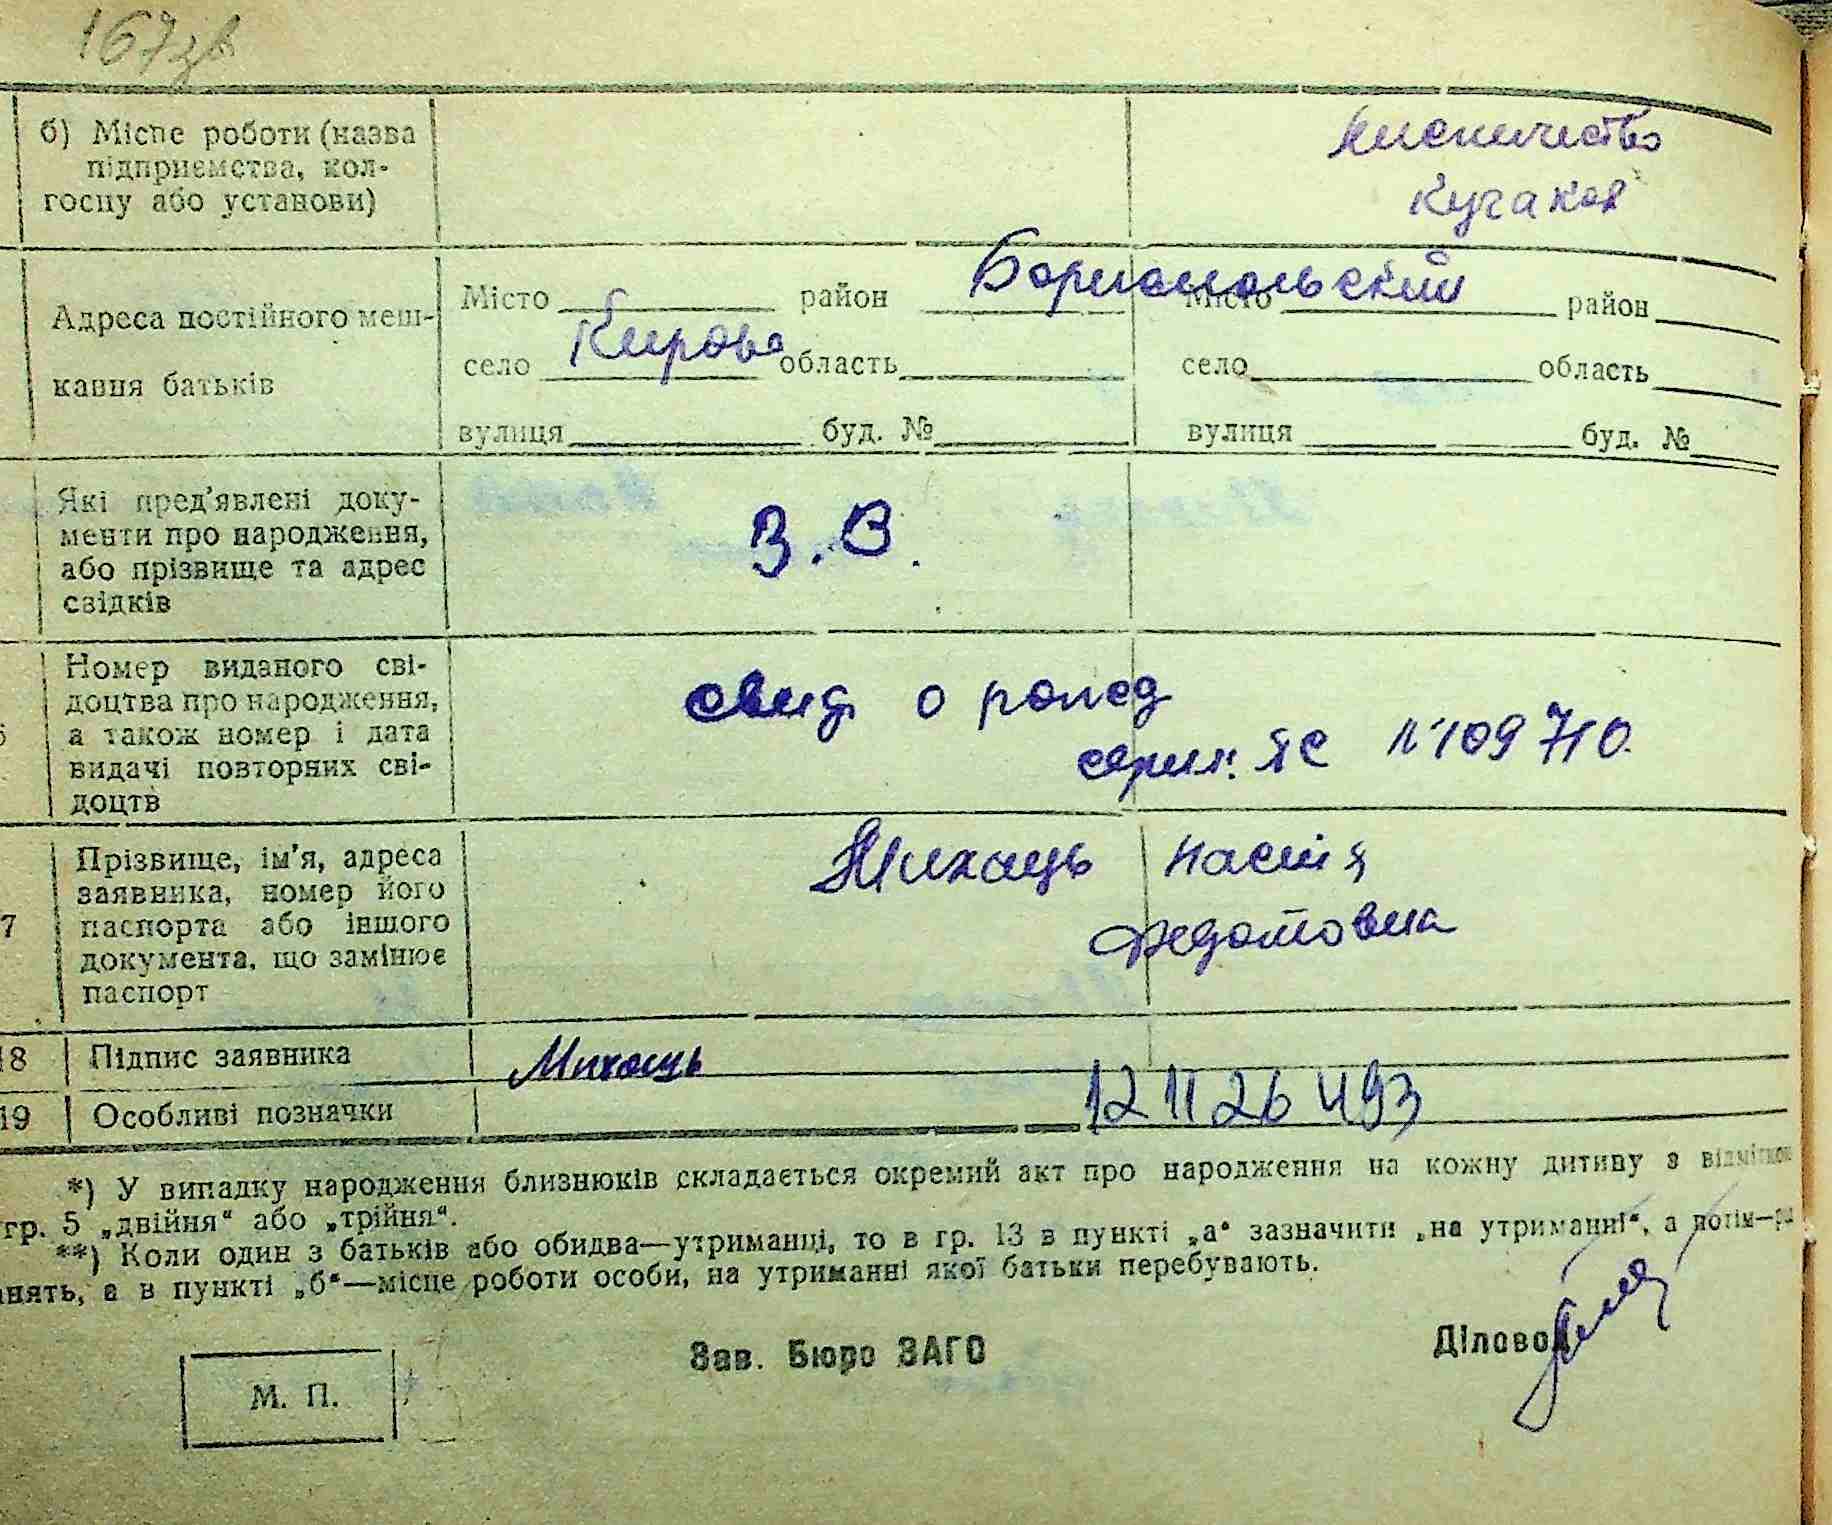 167зв
б) Місце роботи (назва
підприємства, кол-
госпу або установи)
Лисничество
Кучаков
Адреса постійного меш-
кання батьків
Місто район Бориспольский Місто район
село Кирова область село область
вулиця буд. № вулиця буд. №
Які пред'явлені доку-
менти про народження,
або прізвище та адрес
свідків
З.В.
Номер виданого сві-
доцтва про народження,
а також номер і дата
видачі повторних сві-
доцтв
свид о рожд
серия: ЯС №109710
7 Прізвище, ім'я, адреса
заявника, номер його
паспорта або іншого
документа, що замінює
паспорт
Михаць Настя
Федотовна
18 Підпис заявника Михаць
19 Особливі позначки 12 11 26 493
*) У випадку народження близнюків складається окремий акт про народження на кожну дитину з відміткою
гр. 5 „двійня“ або „трійня“.
**) Коли один з батьків або обидва—утриманці, то в гр. 13 в пункті „а“ зазначити „на утриманні“, а потім—
в пункті „б“—місце роботи особи, на утриманні якої батьки перебувають.
Зав. Бюро ЗАГС Діловод
М. П.